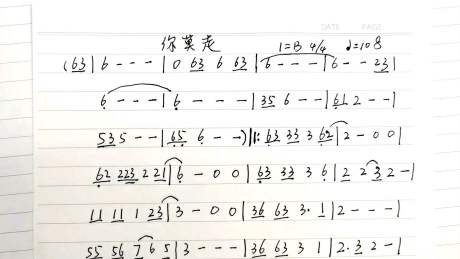 DATE PAGE
你莫走 1=B 4/4 ♩=108
(63|6---|0 63 6 63|6---|6--23|
6---|6---|35 6--|61 2--|
535--|65 6--)‖:63 33 3 62|2-00|
62 223 2 21|6-00|63 33 3 6|2 2 3 2-|
11 11 1 23|3-00|36 63 3·1|2---|
55 56 7 6 5|3---|36 63 3 1|2·3 2-|